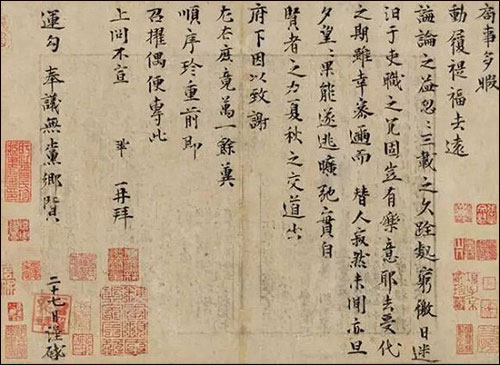 局事多暇
動履禔福去遠
誨論之益忽忽三載之久跧處窮徼日迷
汩于吏職之冗固豈有樂意耶去受代
之期雖幸密邇而替人寂然未聞亦旦
夕望望果能遂逃曠弛實自
賢者之力夏秋之交道出
府下因以致謝
左右庶竟萬一餘冀
順序珍重前即
召擢偶便專此
上問不宣 鞏再拜
運勾 奉議無黨鄉賢 二十七日謹啟